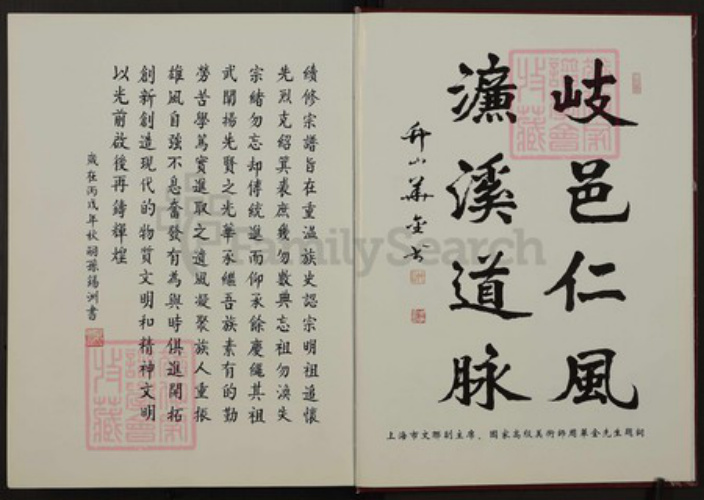 岐邑仁風
濂溪道脉
上海市文聯副主席、國家高級美術師周華金先生題詞
續修宗譜旨在重溫族史認宗明祖追懷
先烈克紹箕裘庶幾勿數典忘祖勿渙失
宗緒勿忘却傳統進而仰承餘慶繩其祖
武闡揚先賢之光華承繼吾族素有的勤
勞苦學篤實進取之遺風凝聚族人重振
雄風自強不息奮發有為與時俱進開拓
創新創造現代的物質文明和精神文明
以光前啟後再鑄輝煌
歲在丙戌年秋嗣孫錫洲書
FamilySearch